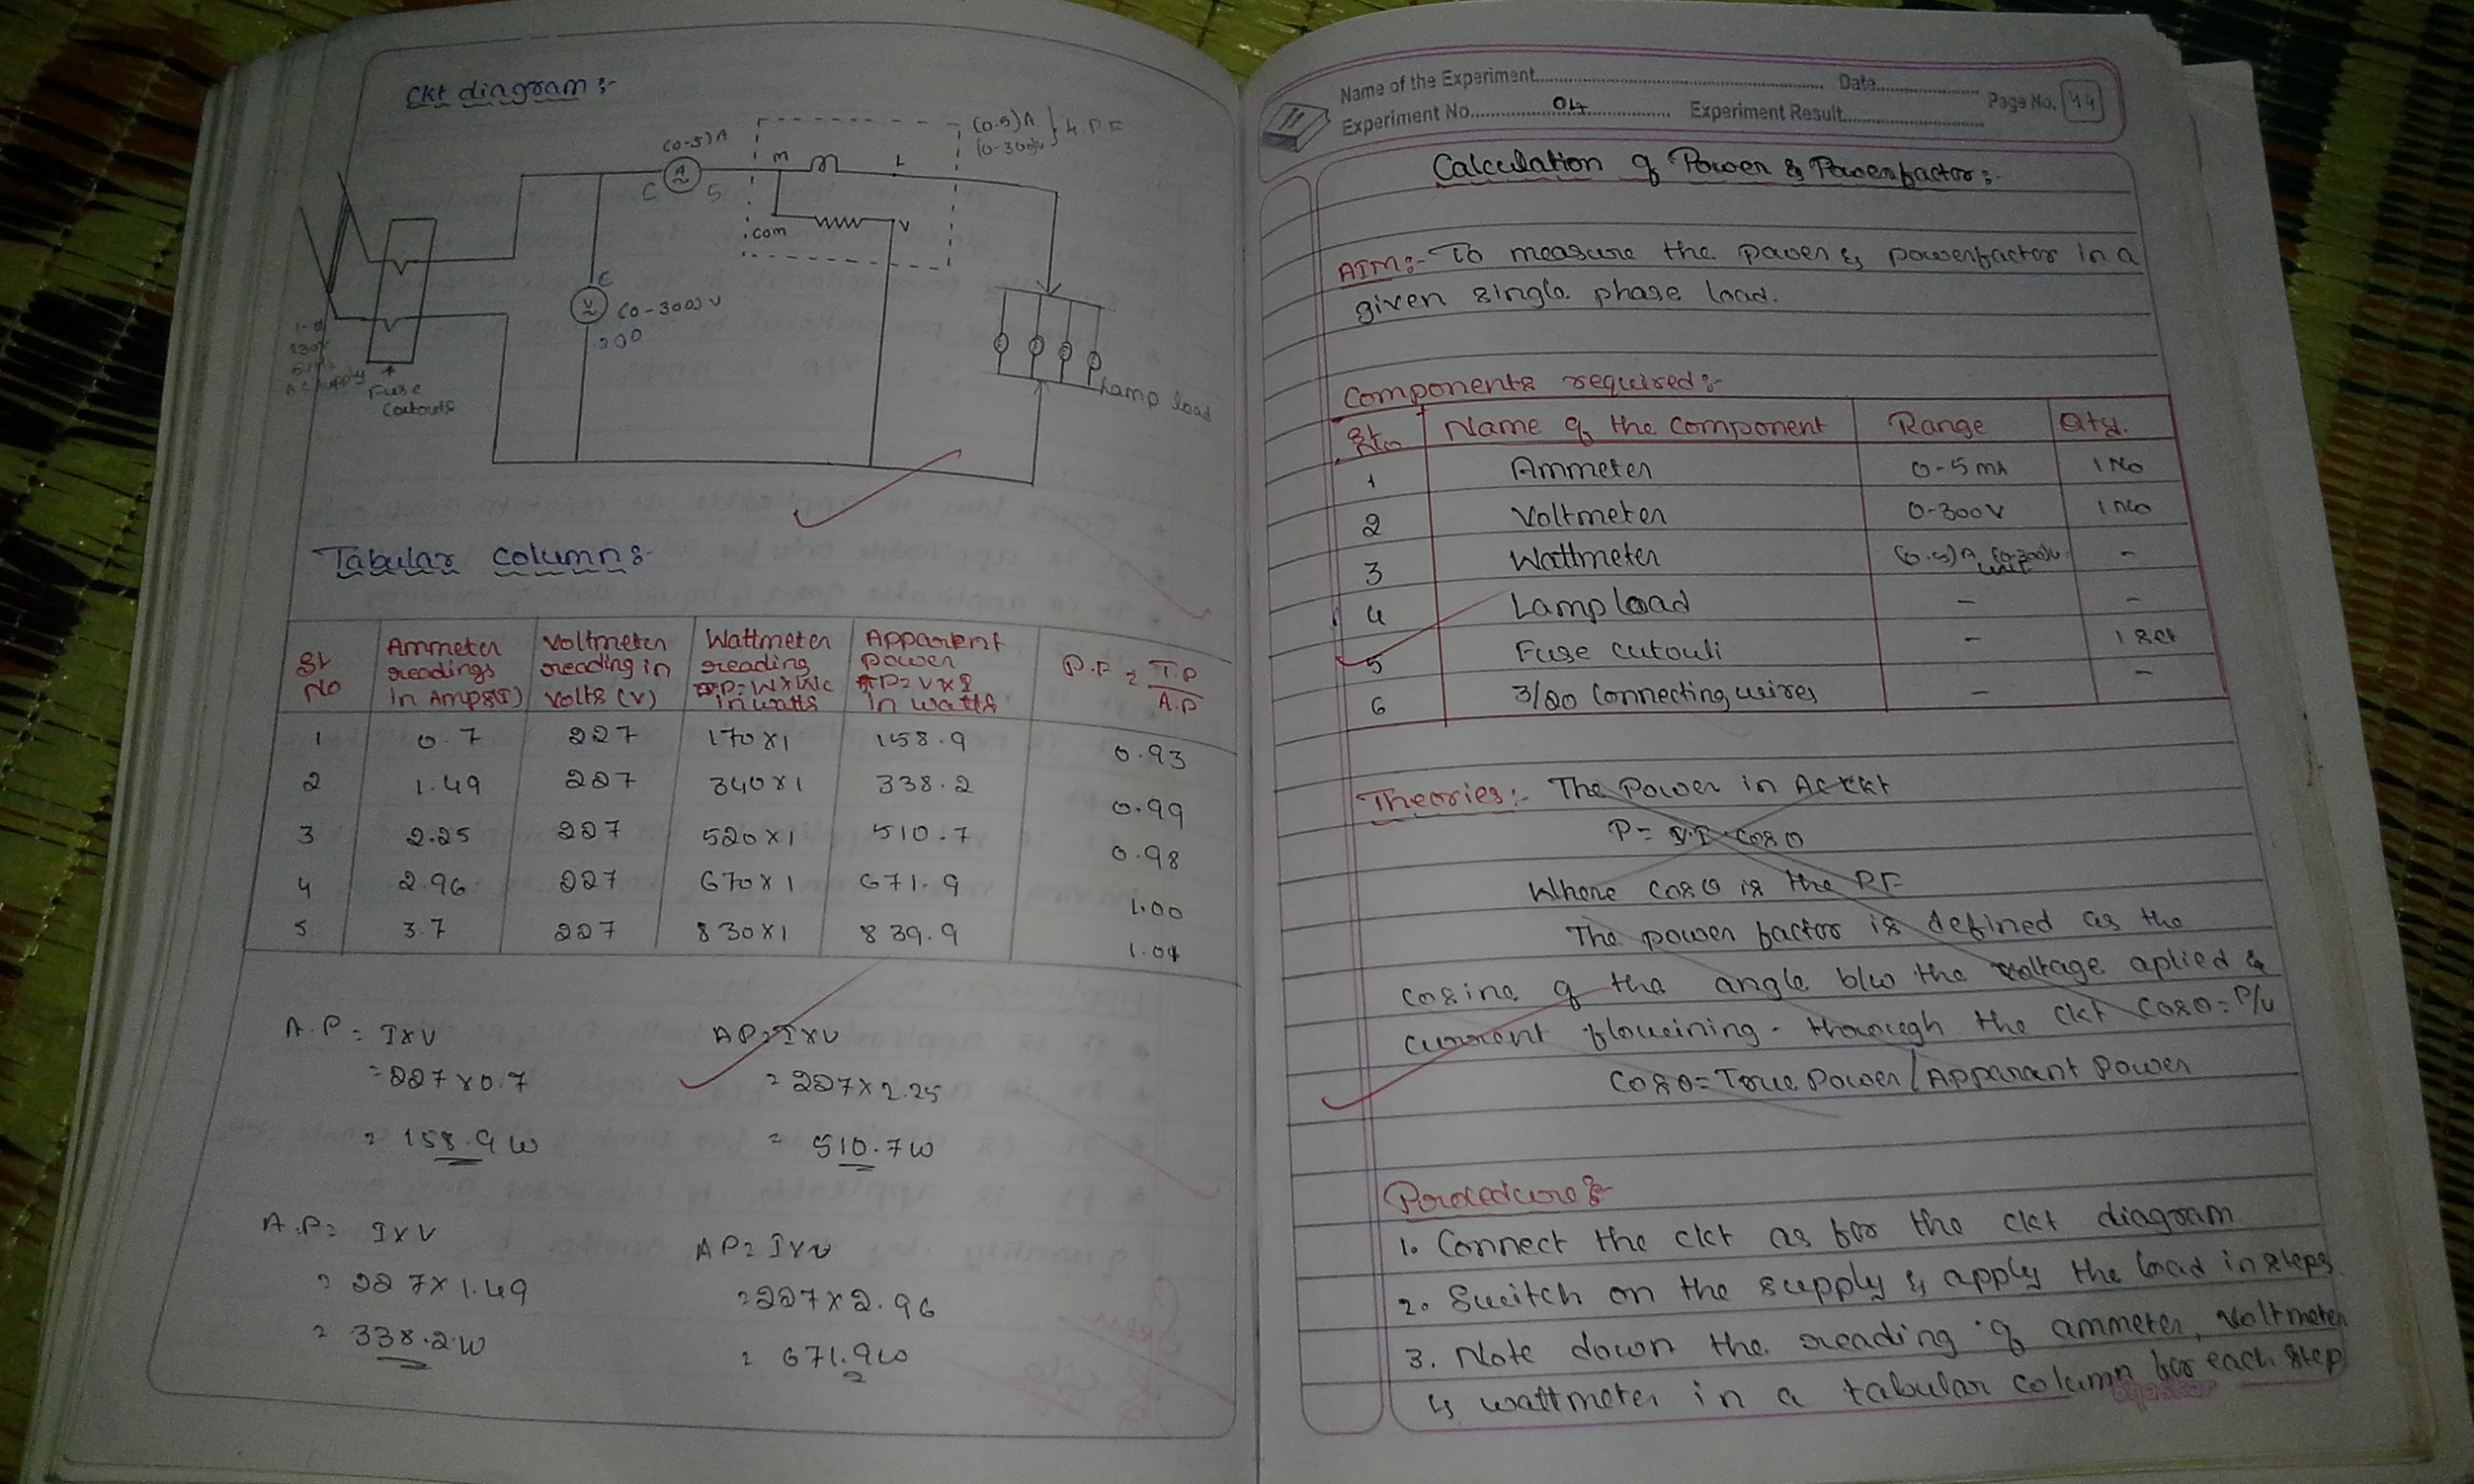 Ckt diagram :-
(0-5)A
(0-5)A } L.P.F
(0-300)v
M
L
A
C
S
com
V
C
V
(0-300) v
300
1-Ø
230v
50Hz
AC supply
Fuse
Cutouts
Lamp load
Tabular column :-
Sl No | Ammeter readings in Amps(I) | Voltmeter reading in volts (V) | Wattmeter reading P=WxWc in watts | Apparent power AP=VxI in watts | P.F = T.P / A.P
1 | 0.7 | 227 | 170x1 | 158.9 | 0.93
2 | 1.49 | 227 | 340x1 | 338.2 | 0.99
3 | 2.25 | 227 | 520x1 | 510.7 | 0.98
4 | 2.96 | 227 | 670x1 | 671.9 | 1.00
5 | 3.7 | 227 | 830x1 | 839.9 | 1.01
A.P = IxV
= 227x0.7
= 158.9 W
AP = IxV
= 227x2.25
= 510.7W
A.P = IxV
= 227x1.49
= 338.2W
AP = IxV
= 227x2.96
= 671.9W
Name of the Experiment
Date
Experiment No. 04
Experiment Result
Page No. 44
Calculation of Power & Powerfactor :-
AIM :- To measure the power & powerfactor in a
given single phase load.
Components required :-
Sl no | Name of the component | Range | Qty.
1 | Ammeter | 0-5mA | 1 No
2 | Voltmeter | 0-300V | 1 no
3 | Wattmeter | (0-5)A (0-300)v | -
4 | Lamp load | - | -
5 | Fuse cutouti | - | 1 set
6 | 3/20 Connecting wires | - | -
Theories :- The Power in AC ckt
P = V.I. cosθ
Where cosθ is the P.F
The power factor is defined as the
cosine of the angle b/w the voltage aplied &
current floweining through the ckt cosθ = P/V
cosθ = True Power / Apparant Power
Porocedure :-
1. Connect the ckt as for the ckt diagram
2. Switch on the supply & apply the load in steps.
3. Note down the reading of ammeter, Voltmeter
& wattmeter in a tabular column for each step